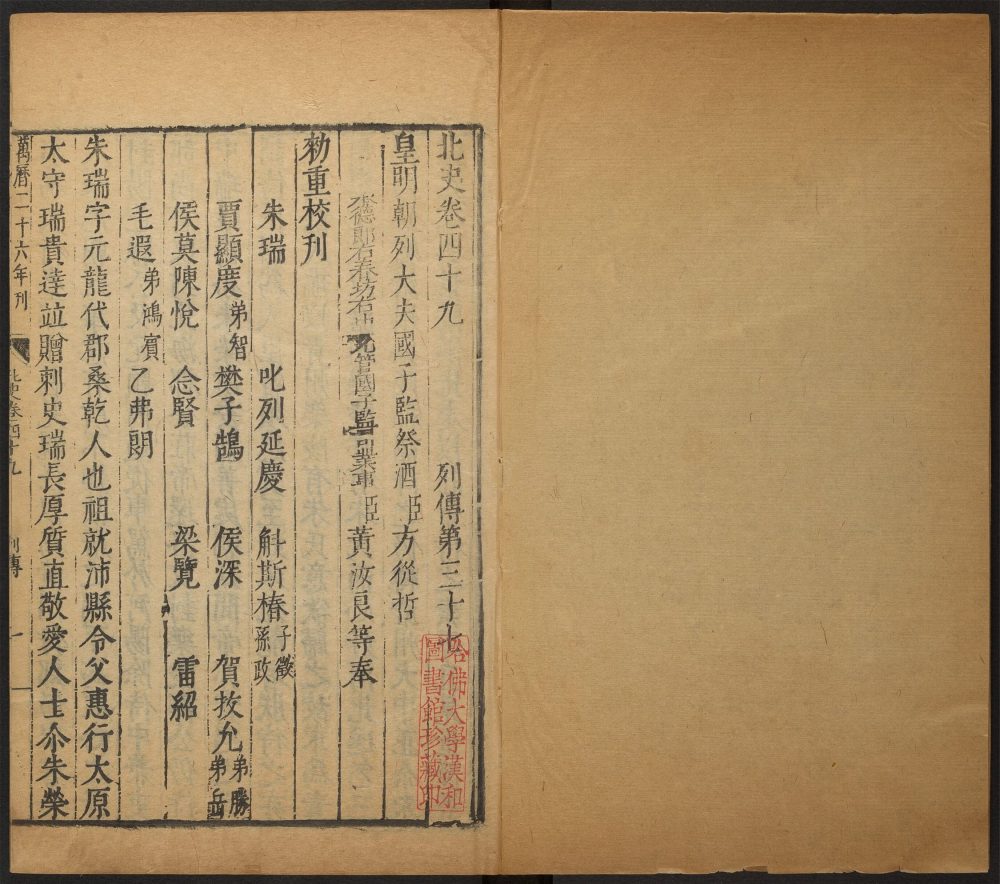 北史卷四十九 列傳第三十七
皇明朝列大夫國子監祭酒臣方從哲
承德郎右春坊右中允管國子監司業事臣黃汝良等奉
勑重校刊
朱瑞 叱列延慶 斛斯椿 子徵 孫政
賈顯度 弟智 樊子鵠 侯深 賀拔允 弟勝 弟岳
侯莫陳悅 念賢 梁覽 雷紹
毛遐 弟鴻賓 乙弗朗
朱瑞字元龍代郡桑乾人也祖就沛縣令父惠行太原
太守瑞貴達竝贈刺史瑞長厚質直敬愛人士尒朱榮
萬曆二十六年刊
北史卷四十九 列傳 一
哈佛大學漢和
圖書館珍藏印